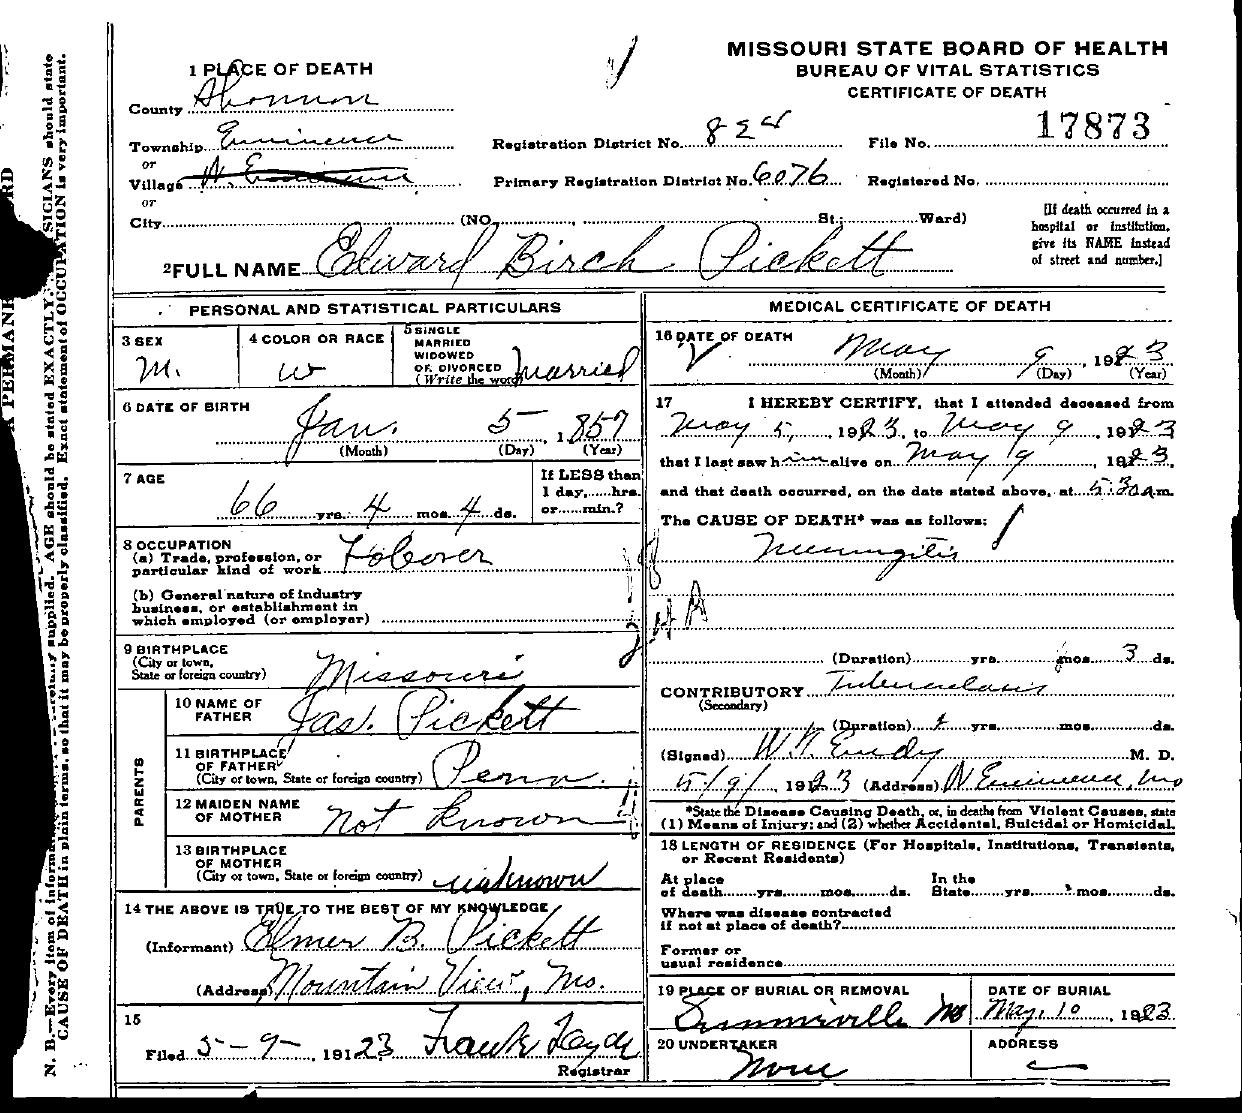 MISSOURI STATE BOARD OF HEALTH
BUREAU OF VITAL STATISTICS
CERTIFICATE OF DEATH
1 PLACE OF DEATH
County Shannon
Township Eminence
or
Village N. Eminence
or
City (NO. St; Ward)
Registration District No. 824 File No. 17873
Primary Registration District No. 6076 Registered No.
[If death occurred in a
hospital or institution,
give its NAME instead
of street and number.]
2 FULL NAME Edward Birch Pickett
PERSONAL AND STATISTICAL PARTICULARS
3 SEX
M.
4 COLOR OR RACE
W
5 SINGLE
MARRIED
WIDOWED
OR DIVORCED
(Write the word) Married
6 DATE OF BIRTH
Jan. 5, 1857
(Month) (Day) (Year)
7 AGE
66 yrs. 4 mos. 4 ds.
If LESS than
1 day, hrs.
or min.?
8 OCCUPATION
(a) Trade, profession, or
particular kind of work
(b) General nature of industry
business, or establishment in
which employed (or employer)
9 BIRTHPLACE
(City or town,
State or foreign country) Missouri
PARENTS
10 NAME OF
FATHER Jas. Pickett
11 BIRTHPLACE
OF FATHER
(City or town, State or foreign country) Penn.
12 MAIDEN NAME
OF MOTHER not known
13 BIRTHPLACE
OF MOTHER
(City or town, State or foreign country) unknown
14 THE ABOVE IS TRUE TO THE BEST OF MY KNOWLEDGE
(Informant) Elmer B. Pickett
(Address) Mountain View, Mo.
15
Filed 5-9-, 191 23 Frank
Registrar
MEDICAL CERTIFICATE OF DEATH
16 DATE OF DEATH
May 9, 1923
(Month) (Day) (Year)
17 I HEREBY CERTIFY, that I attended deceased from
May 5, 1923, to May 9, 1923
that I last saw him alive on May 9, 1923,
and that death occurred, on the date stated above, at 5:30 a.m.
The CAUSE OF DEATH* was as follows:
Meningitis
(Duration) yrs. mos. 3 ds.
CONTRIBUTORY Tuberculosis
(Secondary)
(Duration) yrs. mos. ds.
(Signed) M. D.
5/9/ 1923 (Address) N Eminence, Mo
*State the Disease Causing Death, or, in deaths from Violent Causes, state
(1) Means of Injury; and (2) whether Accidental, Suicidal or Homicidal.
18 LENGTH OF RESIDENCE (For Hospitals, Institutions, Transients,
or Recent Residents)
At place
of death yrs. mos. ds.
In the
State yrs. mos. ds.
Where was disease contracted
if not at place of death?
Former or
usual residence
19 PLACE OF BURIAL OR REMOVAL
Summerville Mo
DATE OF BURIAL
May, 10, 1923
20 UNDERTAKER
None
ADDRESS